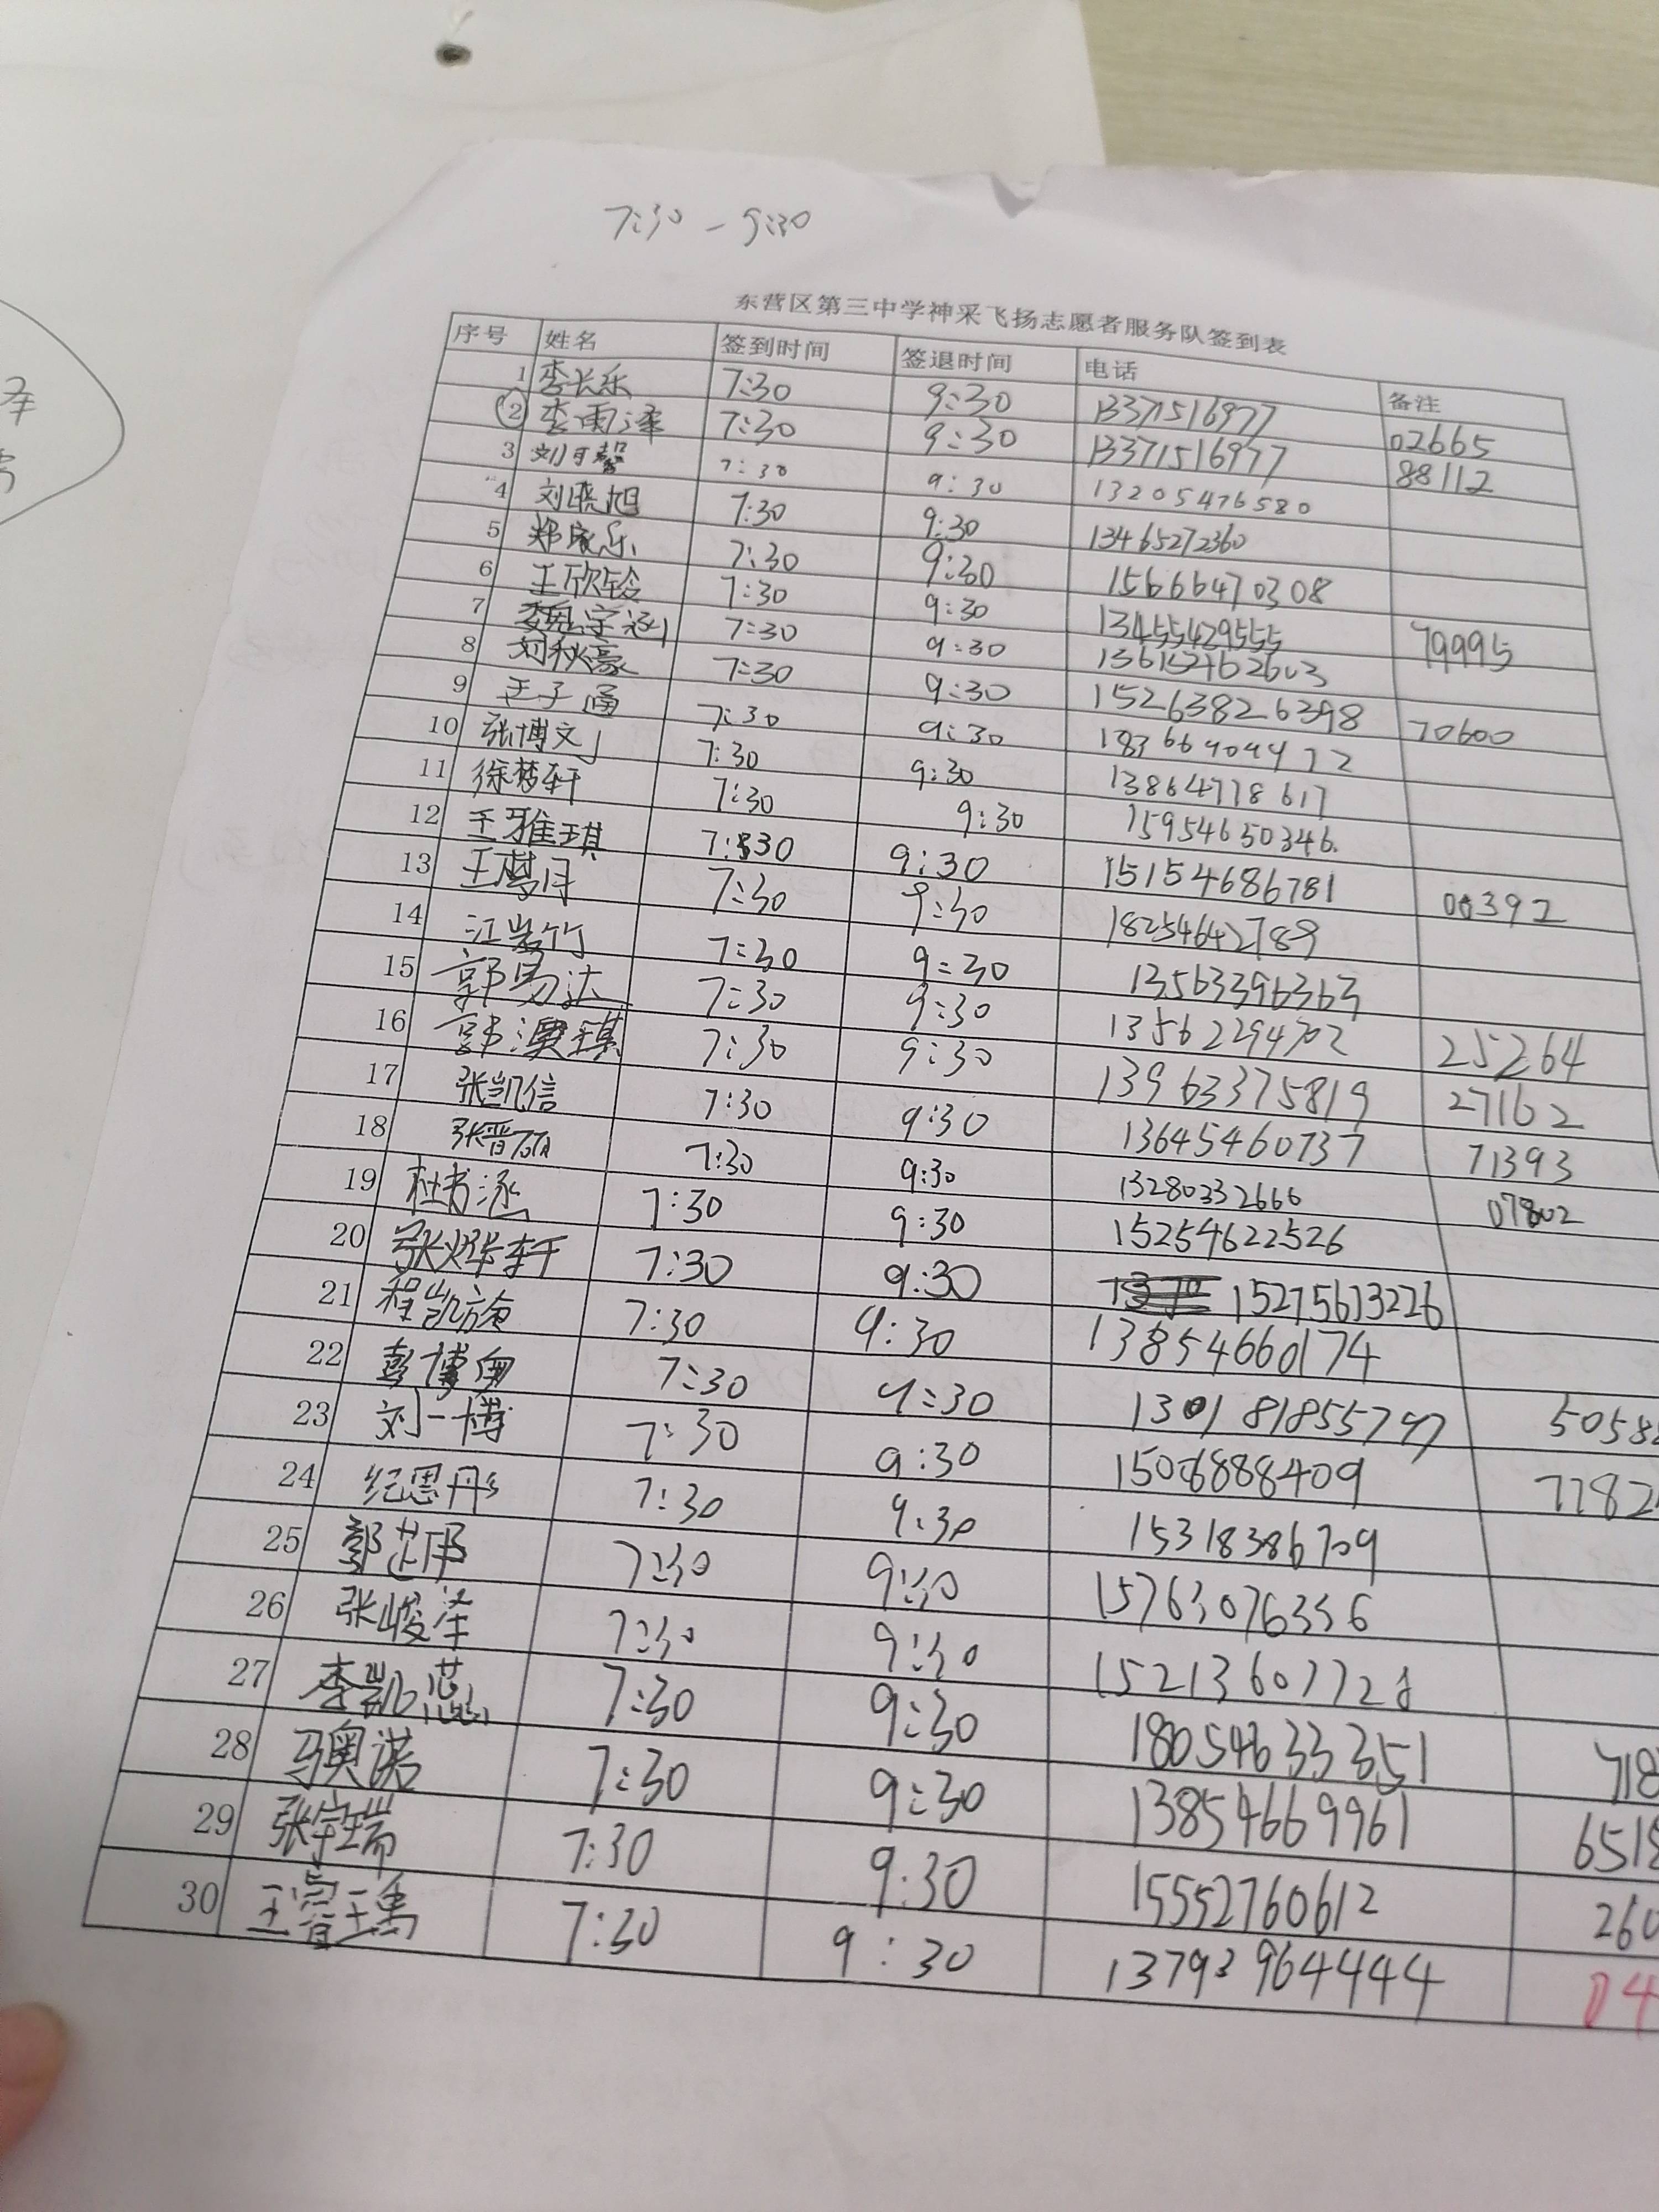 7:30 - 9:30
东营区第三中学神采飞扬志愿者服务队签到表
序号 姓名 签到时间 签退时间 电话 备注
1 李长乐 7:30 9:30 13371516977 02665
2 李雨泽 7:30 9:30 13371516977 88112
3 刘可馨 7:30 9:30 13205476580
4 刘晓旭 7:30 9:30 13465272360
5 郑家乐 7:30 9:30 15666470308
6 王欣铃 7:30 9:30 13455429555 79995
7 魏宇涵 7:30 9:30
8 刘秋豪 7:30 9:30 15263826398 70600
9 王子通 7:30 9:30
10 张博文 7:30 9:30 13864778617
11 徐梦轩 7:30 9:30 15954650346
12 王雅琪 7:30 9:30 15154686781 00392
13 7:30 9:30 18254642789
14 江岩竹 7:30 9:30 13563396363
15 郭易达 7:30 9:30 13562294702 25264
16 郭濮琪 7:30 9:30 13963375819 27162
17 张凯信 7:30 9:30 13645460737 71393
18 张晋 7:30 9:30 13280332666 07802
19 杜书涵 7:30 9:30 15254622526
20 张烨轩 7:30 9:30 15275613226
21 程凯旋 7:30 9:30 13854660174
22 彭博奥 7:30 9:30 5058
23 刘一博 7:30 9:30 15006888409 7782
24 纪思彤 7:30 9:30 15318386709
25 郭芷邑 7:30 9:30 15763076356
26 张峻泽 7:30 9:30
27 李凯蕊 7:30 9:30 18054633351 718
28 马奥诺 7:30 9:30 13854669961 651
29 张宇瑞 7:30 9:30 15552760612 260
30 王睿瑀 7:30 9:30 13793964444 04